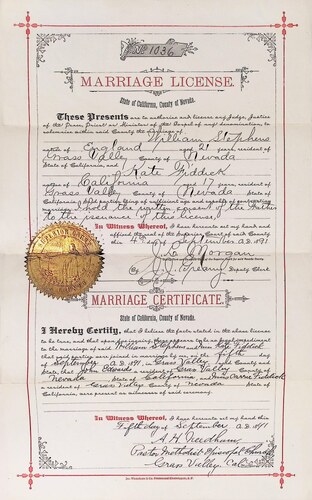 No 1036
MARRIAGE LICENSE.
State of California, County of Nevada.
These Presents are to authorize and license any Judge, Justice
of the Peace, Priest or Minister of the Gospel of any denomination, to
solemnize within said County the marriage of
William Stephens
native of England aged 21 years, resident of
Grass Valley County of Nevada
State of California, and Kate Fiddick
native of California aged 17 years, resident of
Grass Valley County of Nevada
State of California,
I hold the written consent of the Father
to the issuance of this license
In Witness Whereof, I have hereunto set my hand and
affixed the seal of the Superior Court of said County
this 4 day of September A.D. 1891
Jno Morgan
Clerk
By Deputy Clerk
MARRIAGE CERTIFICATE.
State of California, County of Nevada.
I Hereby Certify, that I believe the facts stated in the above license
to be true, and that upon due inquiry, there appears to be no legal impediment
to the marriage of said William Stephens and
that said parties were joined in marriage by me, on the fifth day
of September A.D. 1891, in Grass Valley County and
State; that a resident of Grass Valley County of
Nevada State of California and
a resident of Grass Valley County of Nevada State of
California, were present as witnesses of said ceremony.
In Witness Whereof, I have hereunto set my hand this
Fifth day of September A.D. 1891
A. H. Needham
Pastor Methodist Episcopal Church
Grass Valley, Cal